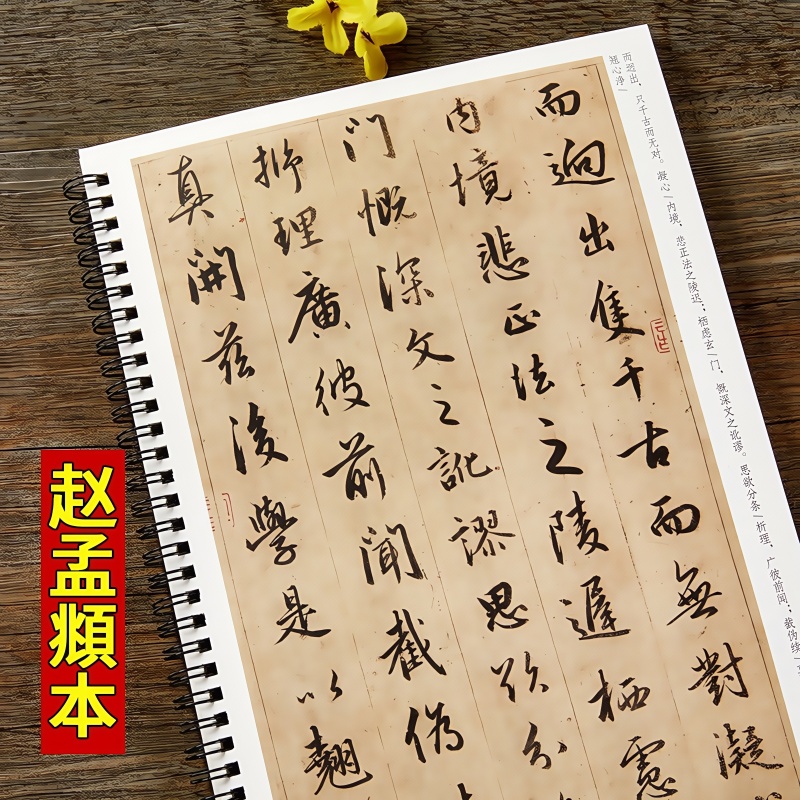 而迥出，只千古而无对。凝心/内境，悲正法之陵迟；栖虑玄/门，慨深文之讹谬。思欲分条/析理，广彼前闻；截伪续
而迥出隻千古而無對凝
内境悲正法之陵遲栖慮
门慨深文之訛謬思欲分
析理廣彼前聞截偽
真開兹後學是以翹
赵孟頫本